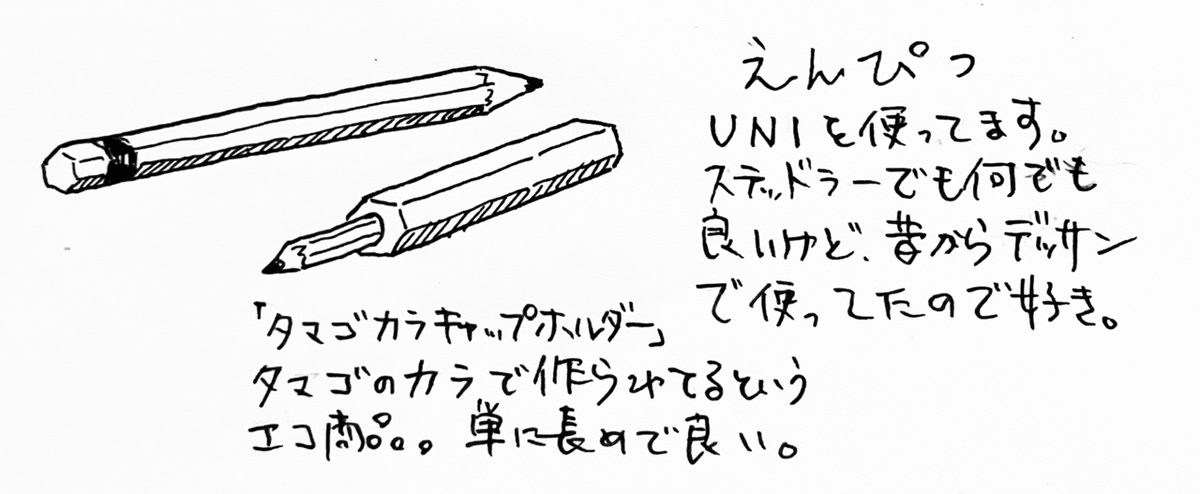 えんぴつ
UNIを使ってます。
ステッドラーでも何でも
良いけど、昔からデッサン
で使ってたので好き。
「タマゴカラキャップホルダー」
タマゴのカラで作られてるという
エコ商品。単に長めで良い。